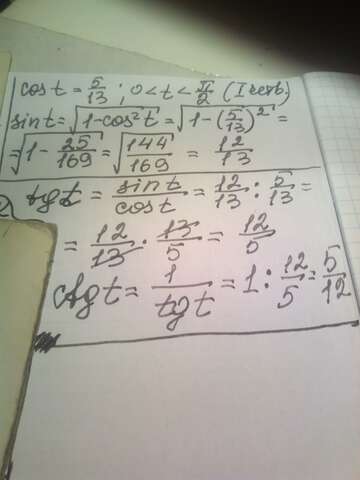 cos t = 5/13 ; 0 < t < π/2 (I четв.)
sin t = √(1 - cos² t) = √(1 - (5/13)²) =
= √(1 - 25/169) = √(144/169) = 12/13
tg t = sin t / cos t = 12/13 : 5/13 =
= 12/13 · 13/5 = 12/5
ctg t = 1 / tg t = 1 : 12/5 = 5/12